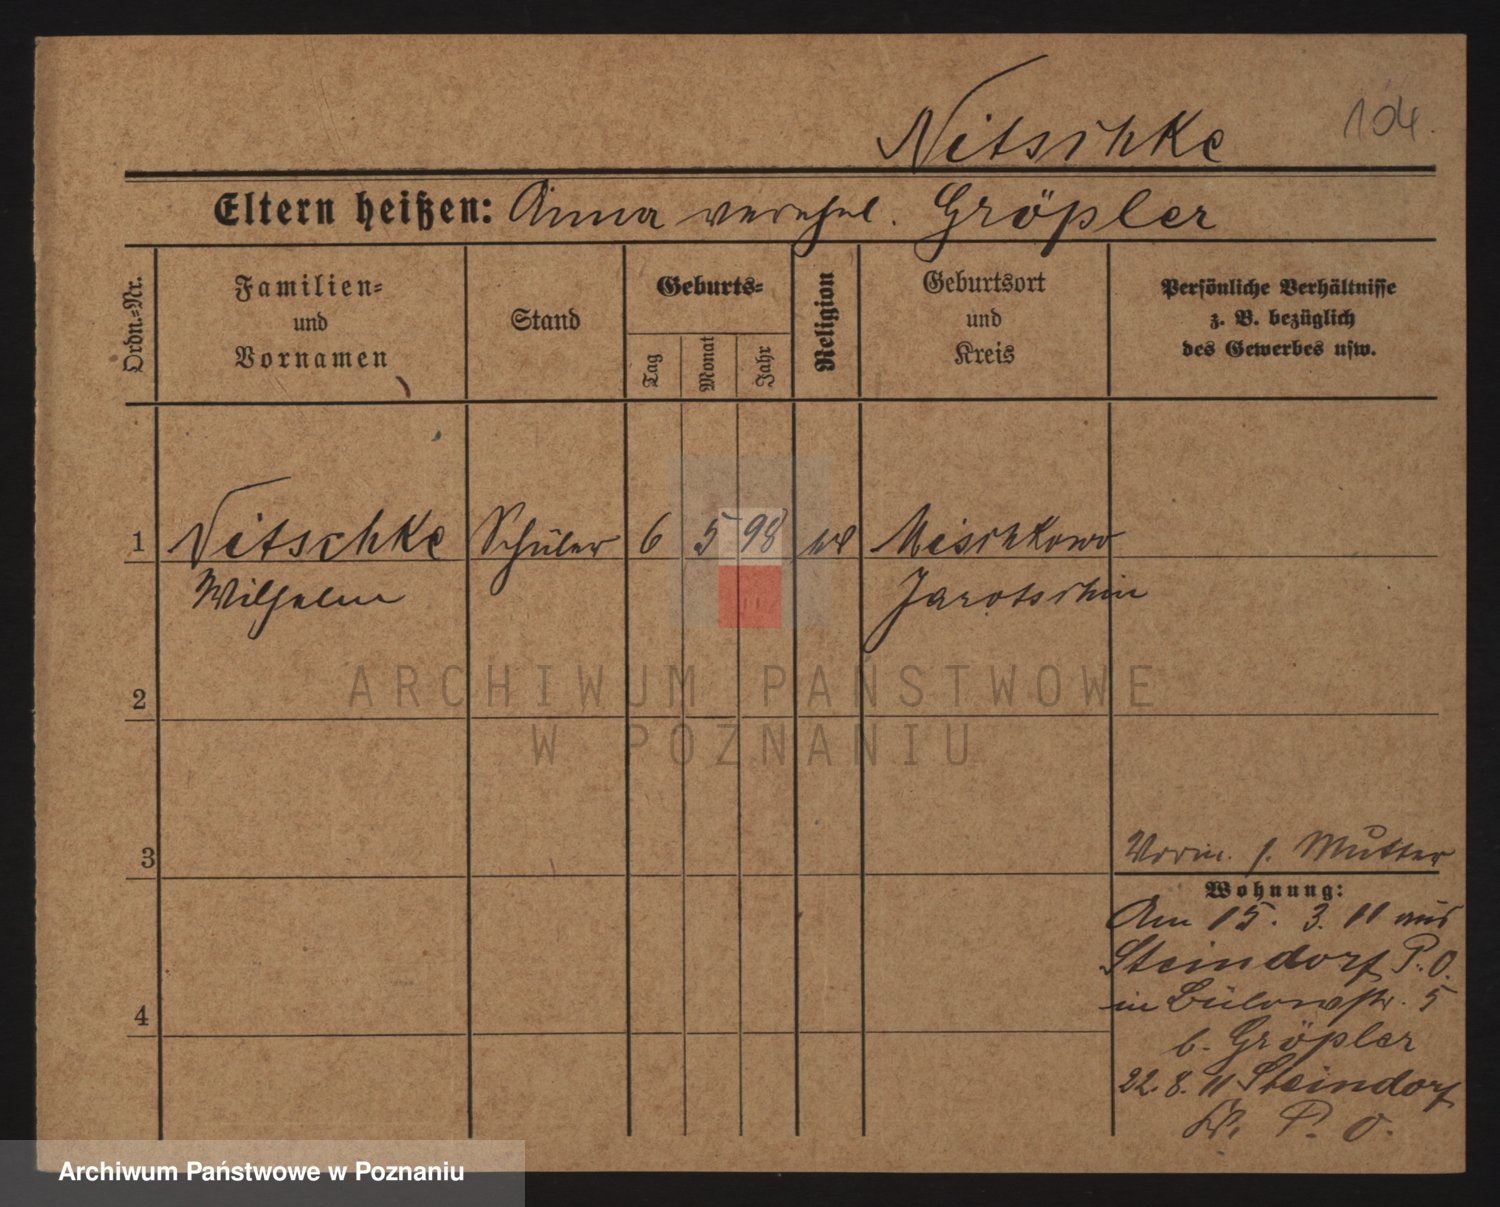 Nitschke
104.
Eltern heißen: Anna verehel. Gröpler
Ordn.=Nr.
Familien=
und
Vornamen
Stand
Geburts=
Tag
Monat
Jahr
Religion
Geburtsort
und
Kreis
Persönliche Verhältnisse
z. B. bezüglich
des Gewerbes usw.
1 Nitschke Schüler 6 5 98 Mischkowo
Wilhelm Jarotschin
2
3
4
Vorm. s. Mutter
Wohnung:
Am 15. 3. 11 aus
Steindorf P. O.
in Bülowstr. 5
b. Gröpler
22. 8. 11 Steindorf
Kr. P. O.
ARCHIWUM PAŃSTWOWE
W POZNANIU
Archiwum Państwowe w Poznaniu